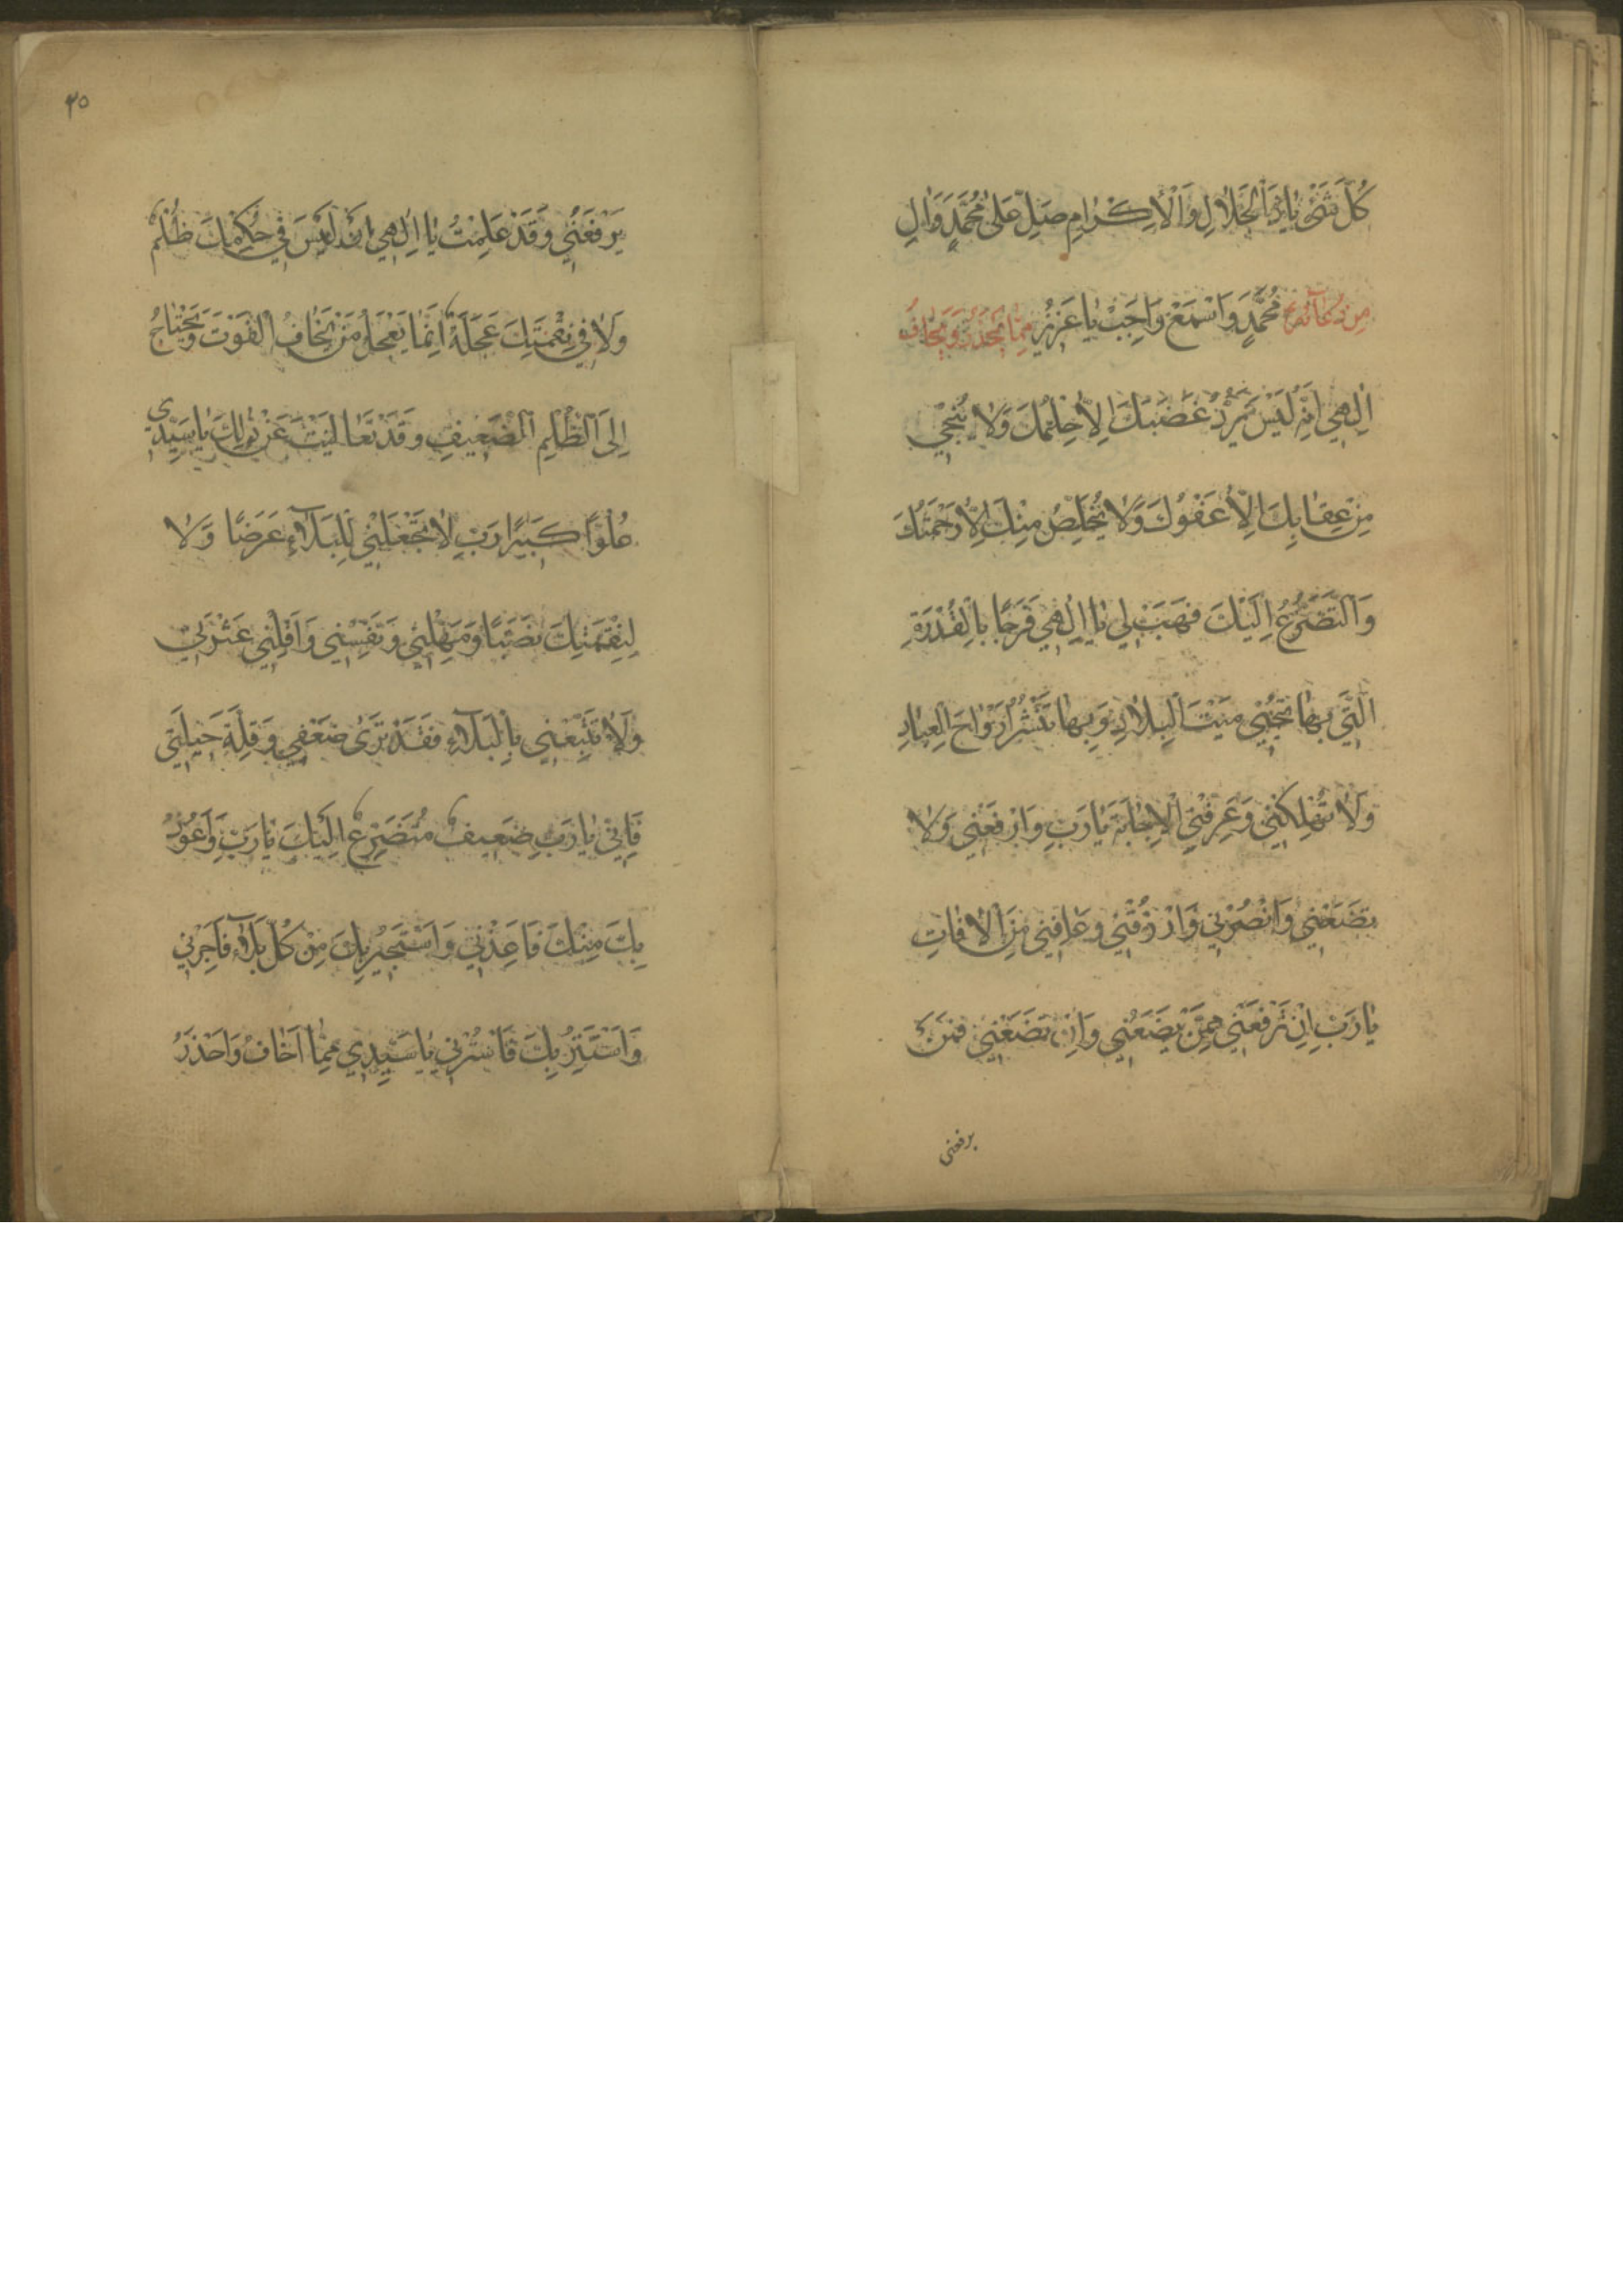 كُلِّ شَىْءٍ يٰا ذَا الْجَلٰالِ وَالْاِكْرٰامِ صَلِّ عَلىٰ مُحَمَّدٍ وَاٰلِ
مُحَمَّدٍ وَاسْمَعْ وَاَجِبْ يٰا عَزِيزُ مِن دُعٰائِهِ مِمّٰا يَحْذَرُهُ وَيَخٰافُ
اِلٰهِي اِنَّهُ لَيْسَ يَرُدُّ غَضَبَكَ اِلّٰا حِلْمُكَ وَلٰا يُنْجِي
مِنْ عِقٰابِكَ اِلّٰا عَفْوُكَ وَلٰا يُخَلِّصُ مِنْكَ اِلّٰا رَحْمَتُكَ
وَالتَّضَرُّعُ اِلَيْكَ فَهَبْ لِي يٰا اِلٰهِي فَرَجًا بِالْقُدْرَةِ
الَّتِي بِهٰا تُحْيِي مَيْتَ الْبِلٰادِ وَبِهٰا تَنْشُرُ اَرْوٰاحَ الْعِبٰادِ
وَلٰا تُهْلِكْنِي وَعَرِّفْنِي الْاِجٰابَةَ يٰا رَبِّ وَارْفَعْنِي وَلٰا
تَضَعْنِي وَانْصُرْنِي وَارْزُقْنِي وَعٰافِنِي مِنَ الْاٰفٰاتِ
يٰا رَبِّ اِنْ تَرْفَعْنِي فَمَنْ يَضَعُنِي وَاِنْ تَضَعْنِي فَمَنْ
يرفعنى
٣٥
يَرْفَعُنِي وَقَدْ عَلِمْتُ يٰا اِلٰهِي اَنْ لَيْسَ فِي حُكْمِكَ ظُلْمٌ
وَلٰا فِي نِقْمَتِكَ عَجَلَةٌ اِنَّمٰا يَعْجَلُ مَنْ يَخٰافُ الْفَوْتَ وَيَحْتٰاجُ
اِلَى الظُّلْمِ الضَّعِيفُ وَقَدْ تَعٰالَيْتَ عَنْ ذٰلِكَ يٰا سَيِّدِي
عُلُوًّا كَبِيرًا رَبِّ لٰا تَجْعَلْنِي لِلْبَلٰاءِ غَرَضًا وَلٰا
لِنِقْمَتِكَ نَصَبًا وَمَهِّلْنِي وَنَفِّسْنِي وَاَقِلْنِي عَثْرَتِي
وَلٰا تُتْبِعْنِي بِالْبَلٰاءِ فَقَدْ تَرىٰ ضَعْفِي وَقِلَّةَ حِيلَتِي
فَاِنِّي يٰا رَبِّ ضَعِيفٌ مُتَضَرِّعٌ اِلَيْكَ يٰا رَبِّ وَاَعُوذُ
بِكَ مِنْكَ فَاَعِذْنِي وَاَسْتَجِيرُ بِكَ مِنْ كُلِّ بَلٰاءٍ فَاَجِرْنِي
وَاَسْتَتِرُ بِكَ فَاسْتُرْنِي يٰا سَيِّدِي مِمّٰا اَخٰافُ وَاَحْذَرُ